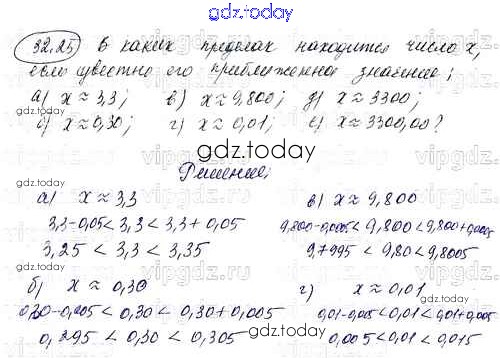 gdz.today
32.25 В каких пределах находится число x,
если известно его приближенное значение:
а) x ≈ 3,3; в) x ≈ 9,800; д) x ≈ 3300;
б) x ≈ 0,30; г) x ≈ 0,01; е) x ≈ 3300,00?
gdz.today
Решение:
а) x ≈ 3,3
3,3-0,05 < 3,3 < 3,3 + 0,05
3,25 < 3,3 < 3,35
в) x ≈ 9,800
9,800-0,0005 < 9,800 < 9,800+0,0005
9,7995 < 9,80 < 9,8005
gdz.today
б) x ≈ 0,30
0,30-0,005 < 0,30 < 0,30 + 0,005
0,295 < 0,30 < 0,305
г) x ≈ 0,01
0,01-0,005 < 0,01 < 0,01+0,005
0,005 < 0,01 < 0,015
gdz.today